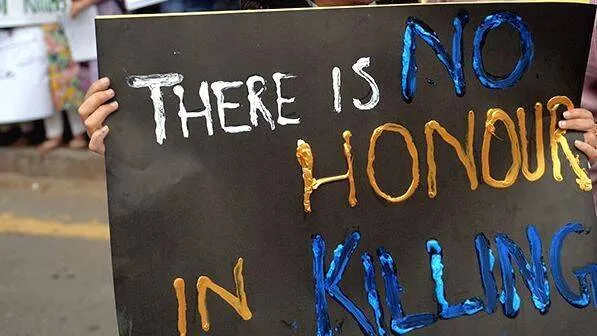 THERE IS NO
HONOUR
IN KILLING